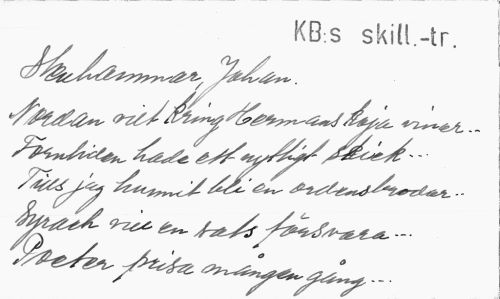 KB:s skill.-tr.
Skuhammar, Johan.
Nordan vret kring Hermans höja viner..
Forntiden hade ett nyttigt skick...
Tills jag hunnit bli en ordensbroder..
Syrach vill en sats försvara...
Poeter prisa mången gång...